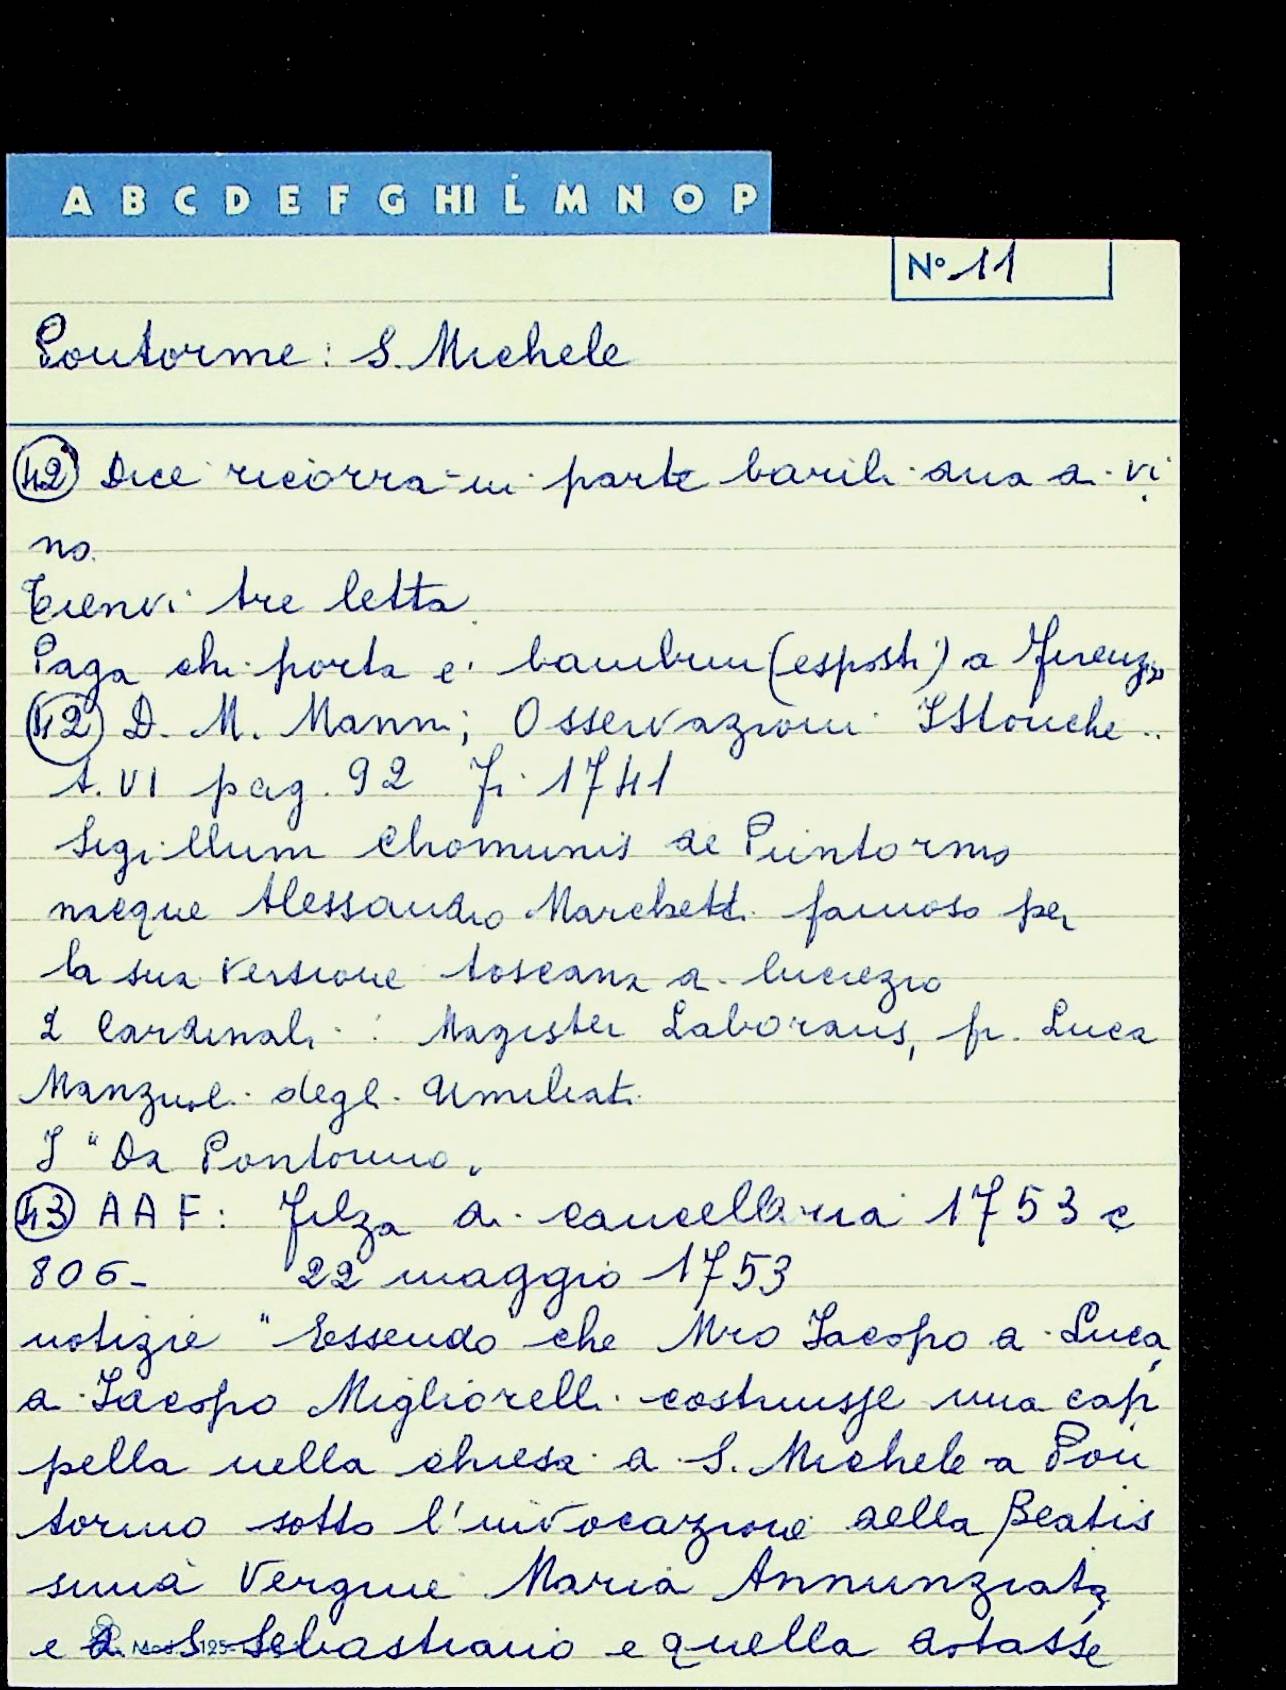 A B C D E F G HI L M N O P
N° 11
Pontorme: S. Michele
(42) Dice ricorra in parte barili dua di vi
no.
Tienvi tre letta
Paga chi porta e' bambini (esposti) a Firenze
(42) D. M. Manni; Osservazioni Istoriche..
t. VI pag. 92 Fi 1741
Sigillum Chomunis de Puntormo
nacque Alessandro Marchetti famoso per
la sua versione toscana di Lucrezio
2 Cardinali: Magister Laborans, fr. Luca
Manzuoli degli Umiliati
I "Da Pontormo"
(43) A A F: Filza di cancelleria 1753 c
806- 22 maggio 1753
notizie "Essendo che Mro Jacopo di Luca
di Jacopo Migliorelli costruisse una cap
pella nella chiesa di S. Michele a Pon
tormo sotto l'invocazione della Beatis
sima Vergine Maria Annunziata
e di S. Sebastiano e quella dotasse